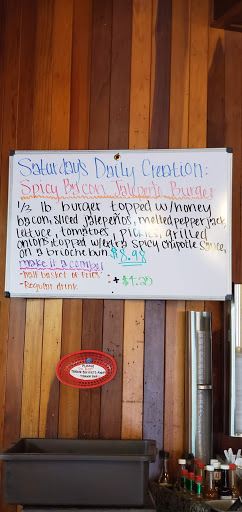 Saturday's Daily Creation:
Spicy Bacon Jalepeño Burger
1/3 lb burger topped w/honey
bacon, sliced jalepeños, melted pepper jack,
lettuce, tomatoes, pickles, grilled
onions, topped w/extra spicy chipotle sauce,
on a brioche bun. $8.98
make it a combo!
-half basket of fries
-Regular drink
:+ $4.20
PLEASE